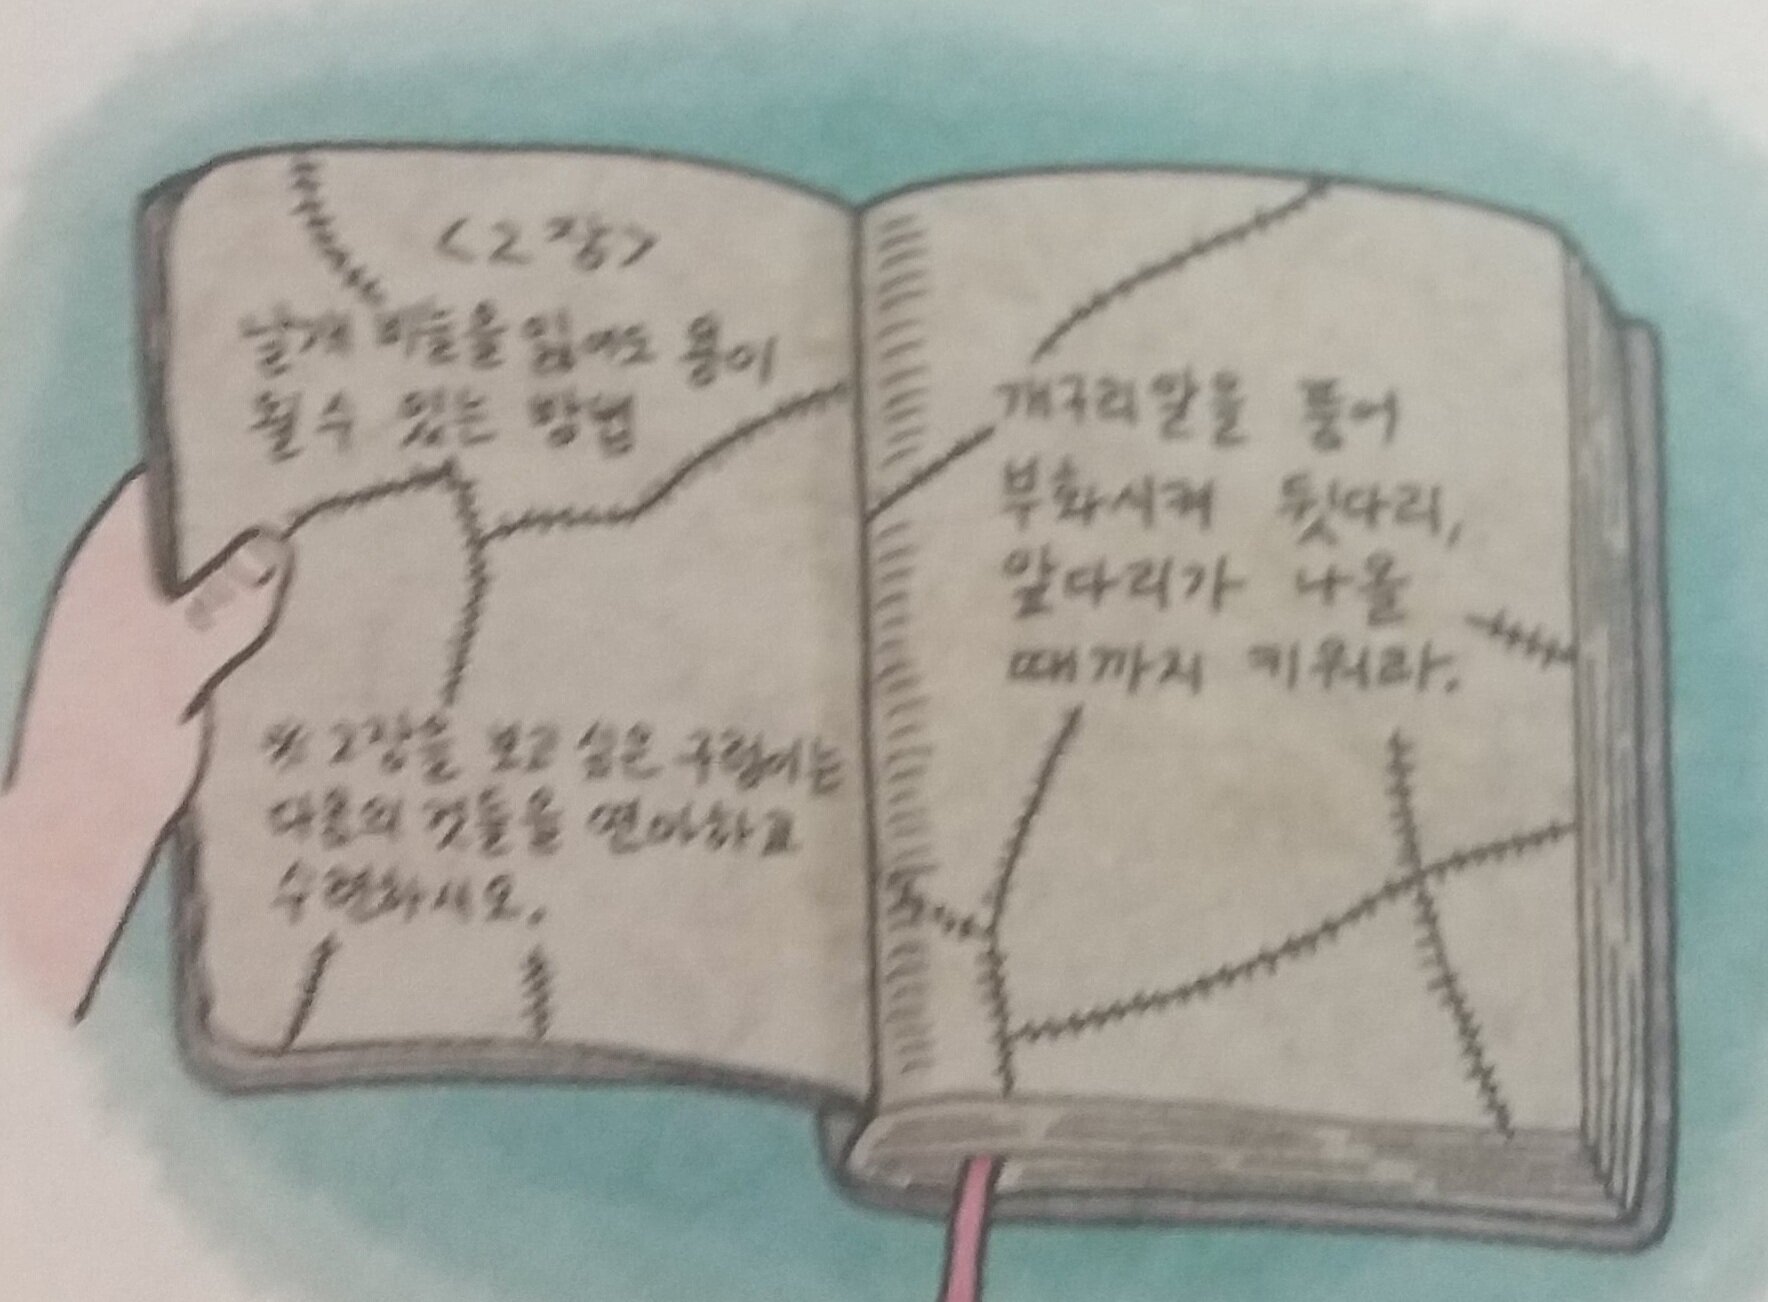 <2장>
날개 비늘을 잃어도 용이
될 수 있는 방법
첫 2장을 보고 싶은 구렁이는
다음의 것들을 연마하고
수련하시오.
개구리알을 품어
부화시켜 뒷다리,
앞다리가 나올
때까지 키워라.